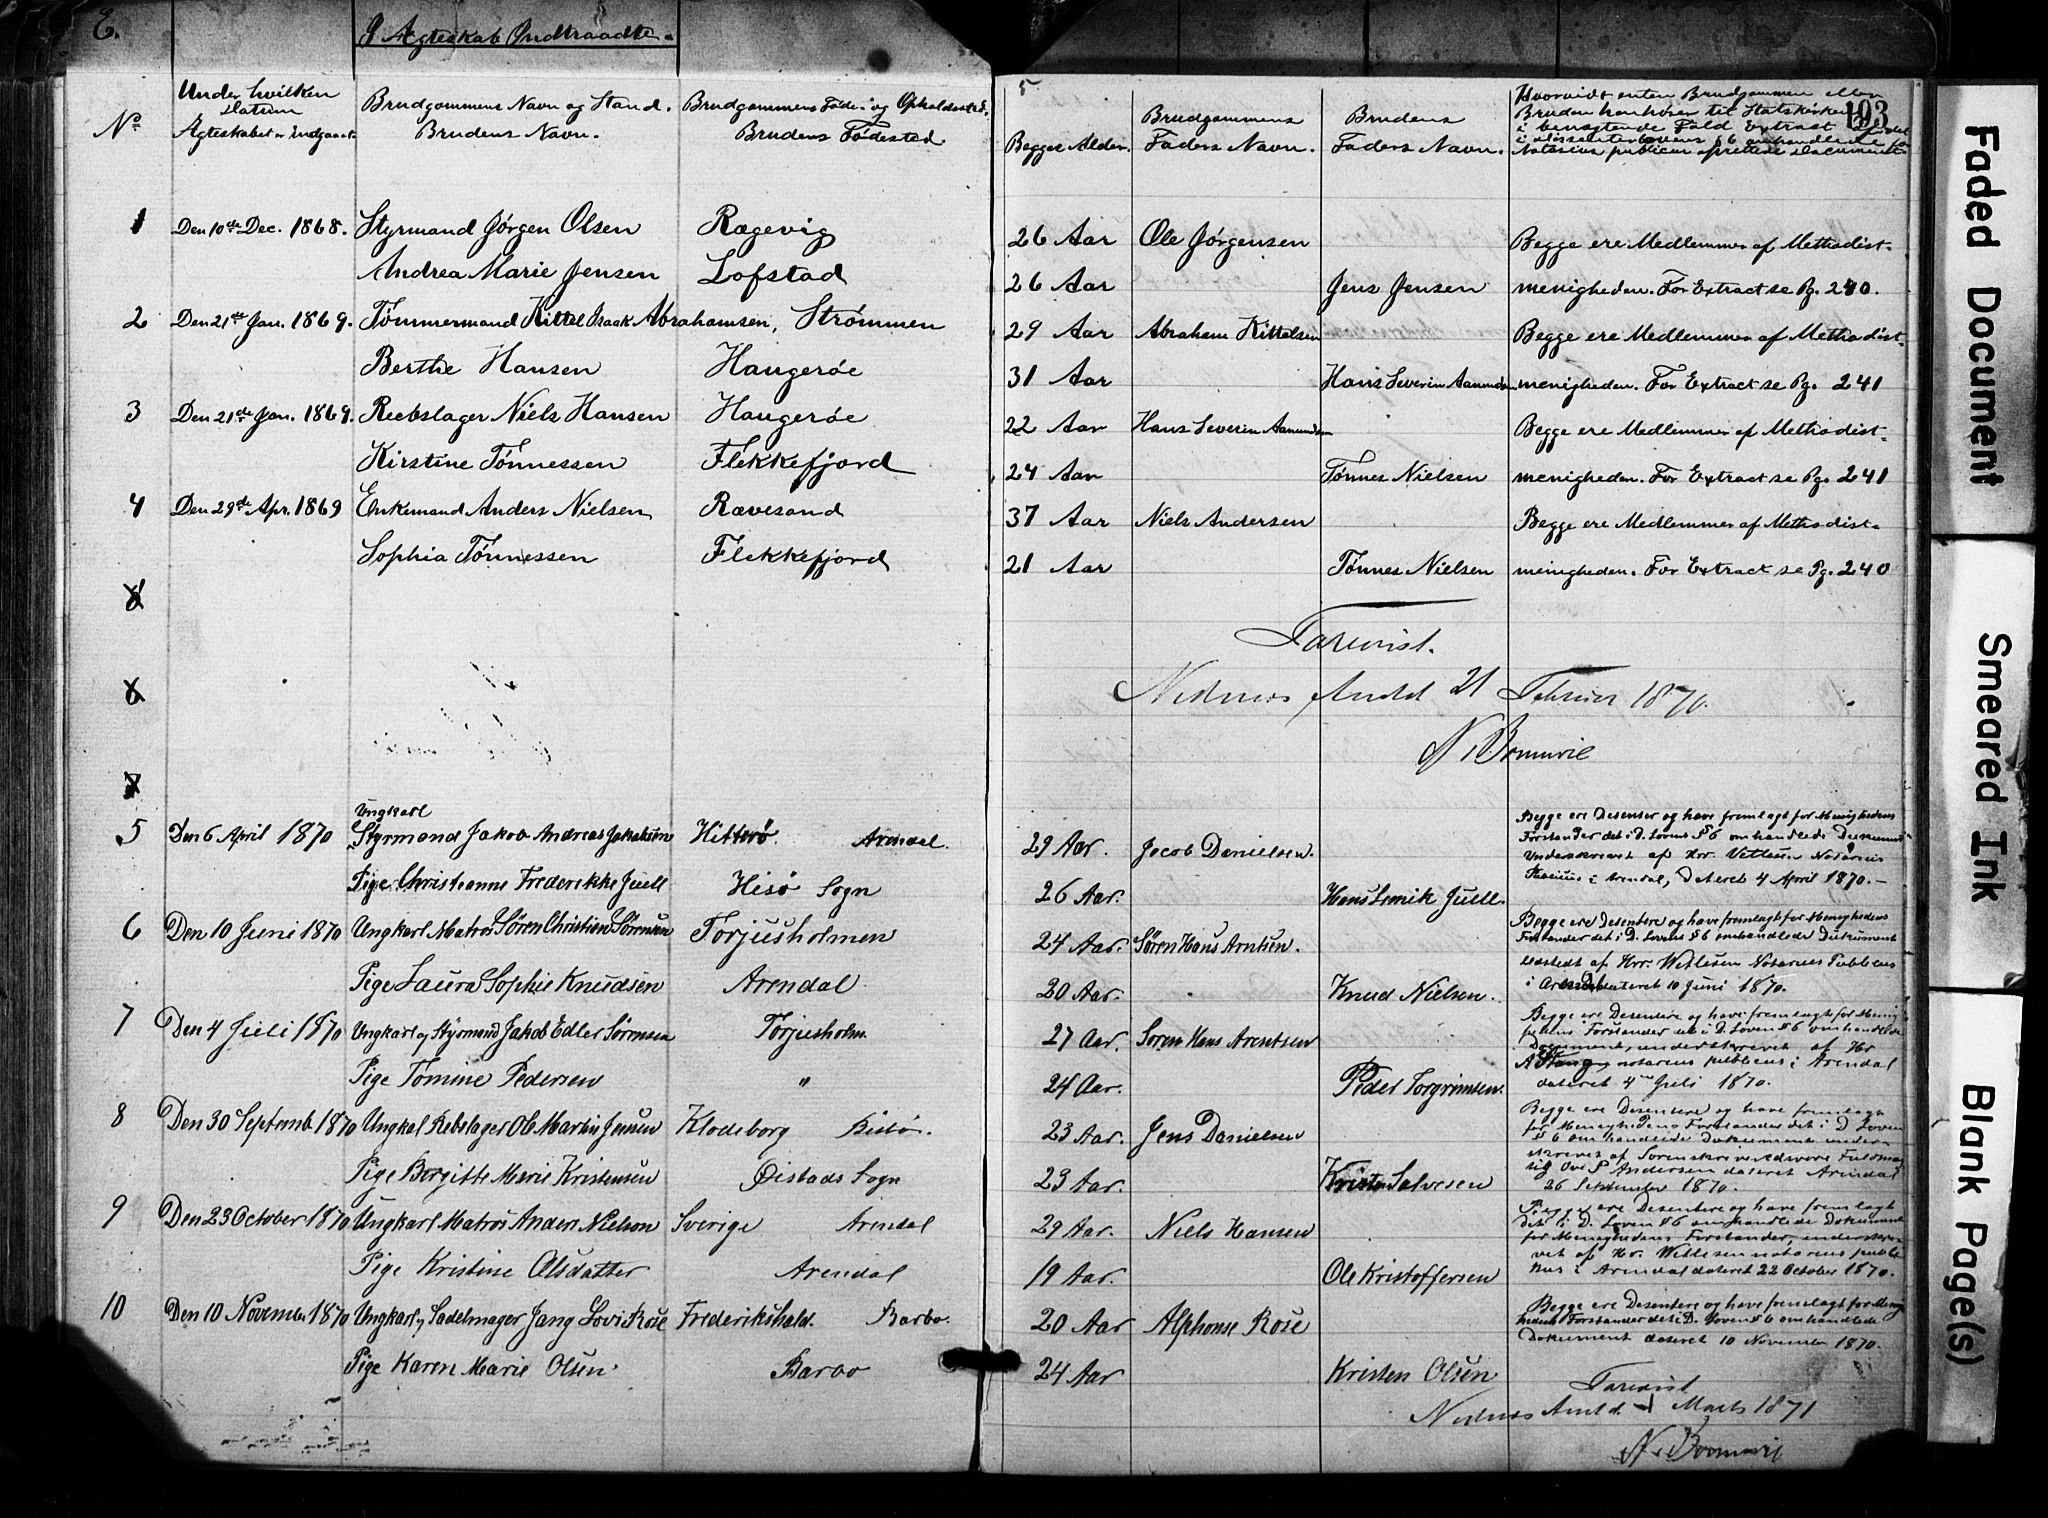 E.
I Ægteskab Indtraadte.
No.
Under hvilken Datum Ægteskabet er indgaaet.
Brudgommens Navn og Stand.
Brudens Navn.
Brudgommens Føde- og Opholdssted.
Brudens Fødested.
5
Begges Alder.
Brudgommens Faders Navn.
Brudens Faders Navn.
Hvorvidt enten Brudgommen eller
Bruden henhører til Statskirken
i benægtende Fald Extract
i Dissenterlovens § 6 omhandlede
Notarius publicus oprettede Document
193
1 Den 10de Dec. 1868. Styrmand Jørgen Olsen Rægevig 26 Aar Ole Jørgensen Begge ere Medlemmer af Methodist-
Andrea Marie Jensen Lofstad 26 Aar Jens Jensen menigheden. For Extract se Pg. 240.
2 Den 21de Jan. 1869. Tømmermand Kittel Isaak Abrahamsen, Strømmen 29 Aar Abraham Kittelsen Begge ere Medlemmer af Methodist-
Berthe Hansen Haugerøe 31 Aar Hans Severin Aanundsen menigheden. For Extract se Pg. 241
3 Den 21de Jan. 1869. Reebslager Niels Hansen Haugerøe 22 Aar Hans Severin Aanundsen Begge ere Medlemmer af Methodist-
Kirstine Tønnessen Flekkefjord 24 Aar Tønnes Nielsen menigheden. For Extract se Pg. 241
4 Den 29de Apr. 1869 Enkemand Anders Nielsen Rævesand 37 Aar Niels Andersen Begge ere Medlemmer af Methodist-
Sophia Tønnessen Flekkefjord 21 Aar Tønnes Nielsen menigheden. For Extract se Pg. 240
Forevist.
Nednes Amtd 21 Februar 1870.
Ungkarl
5 Den 6 April 1870 Styrmand Jakob Andreas Jakobsen Hitterø. Arendal. 29 Aar. Jacob Danielsen.
Begge ere Desenter og have fremlagt for Menighedens
Forstander det i D. Lovens § 6 omhandlede Dockument
Underskrevet af Hr. Vetlesen Notarius
Publicus i Arendal, Dateret 4 April 1870.
Pige Christianne Frederikke Juell Hisø Sogn 26 Aar. Juell.
6 Den 10 Juni 1870 Ungkarl Matros Søren Christian Sørensen Torjusholmen 24 Aar. Søren Hans Arntsen.
Begge ere Desentere og have fremlagt for Menighedens
Forstander det i D. Lovens § 6 omhandlede Dokument
af Hrr. Wetlesen Notarius Publicus
i Arendal dateret 10 Juni 1870.
Pige Laura Sophie Knudsen Arendal. 20 Aar. Knud Nielsen.
7 Den 4 Juli 1870 Ungkarl og Styrmand Jakob Edler Sørensen Torjusholm. 27 Aar. Søren Hans Arentsen
Begge ere Desentere og have fremlagt for Menig
hedens Forstander det i D. Loven § 6 omhandlede
Document, underskrevet af Hr
notarius publicus i Arendal
dateret 4de Juli 1870.
Pige Tomine Pedersen " 24 Aar. Peder Torgrimsen.
8 Den 30 Septemb 1870 Ungkal Rebslager Ole Martin Jensen Klodeborg 23 Aar. Jens Danielsen
Begge ere Desentere og have fremlagt
for Menighedens Forstander det i D Loven
§ 6 omhandlede Dokument under-
skrevet af Sorenskriver
Ove P Andersen dateret Arendal
26 September 1870.
Pige Borgitte Marie Kristensen Øistads Sogn 23 Aar. Kristen Salvesen
9 Den 23 October 1870 Ungkarl Matros Anders Nielson Sverige Arendal 29 Aar. Niels Hansen
Begge ere Desentere og have fremlagt
det i D. Loven § 6 omhandlede Dokument
for Menighedens Forstander, underskre-
vet af Hr. Wetlesen notarius publi
kus i Arendal dateret 22 October 1870.
Pige Kristine Olsdatter Arendal 19 Aar. Ole Kristoffersen
10 Den 10 November 1870 Ungkarl og Sadelmager Jang Lovi Rose Frederikshald. Barbo. 20 Aar Alphonse Rose
Begge ere Desentere og have fremlagt for Menig
hedens Forstander det i D. Loven § 6 omhandlede
Dokument dateret 10 November 1870.
Pige Karen Marie Olsen. Barbo 24 Aar Kristen Olsen
Forevist
Nednes Amtd. 1 Marts 1871
Faded Document
Smeared Ink
Blank Page(s)